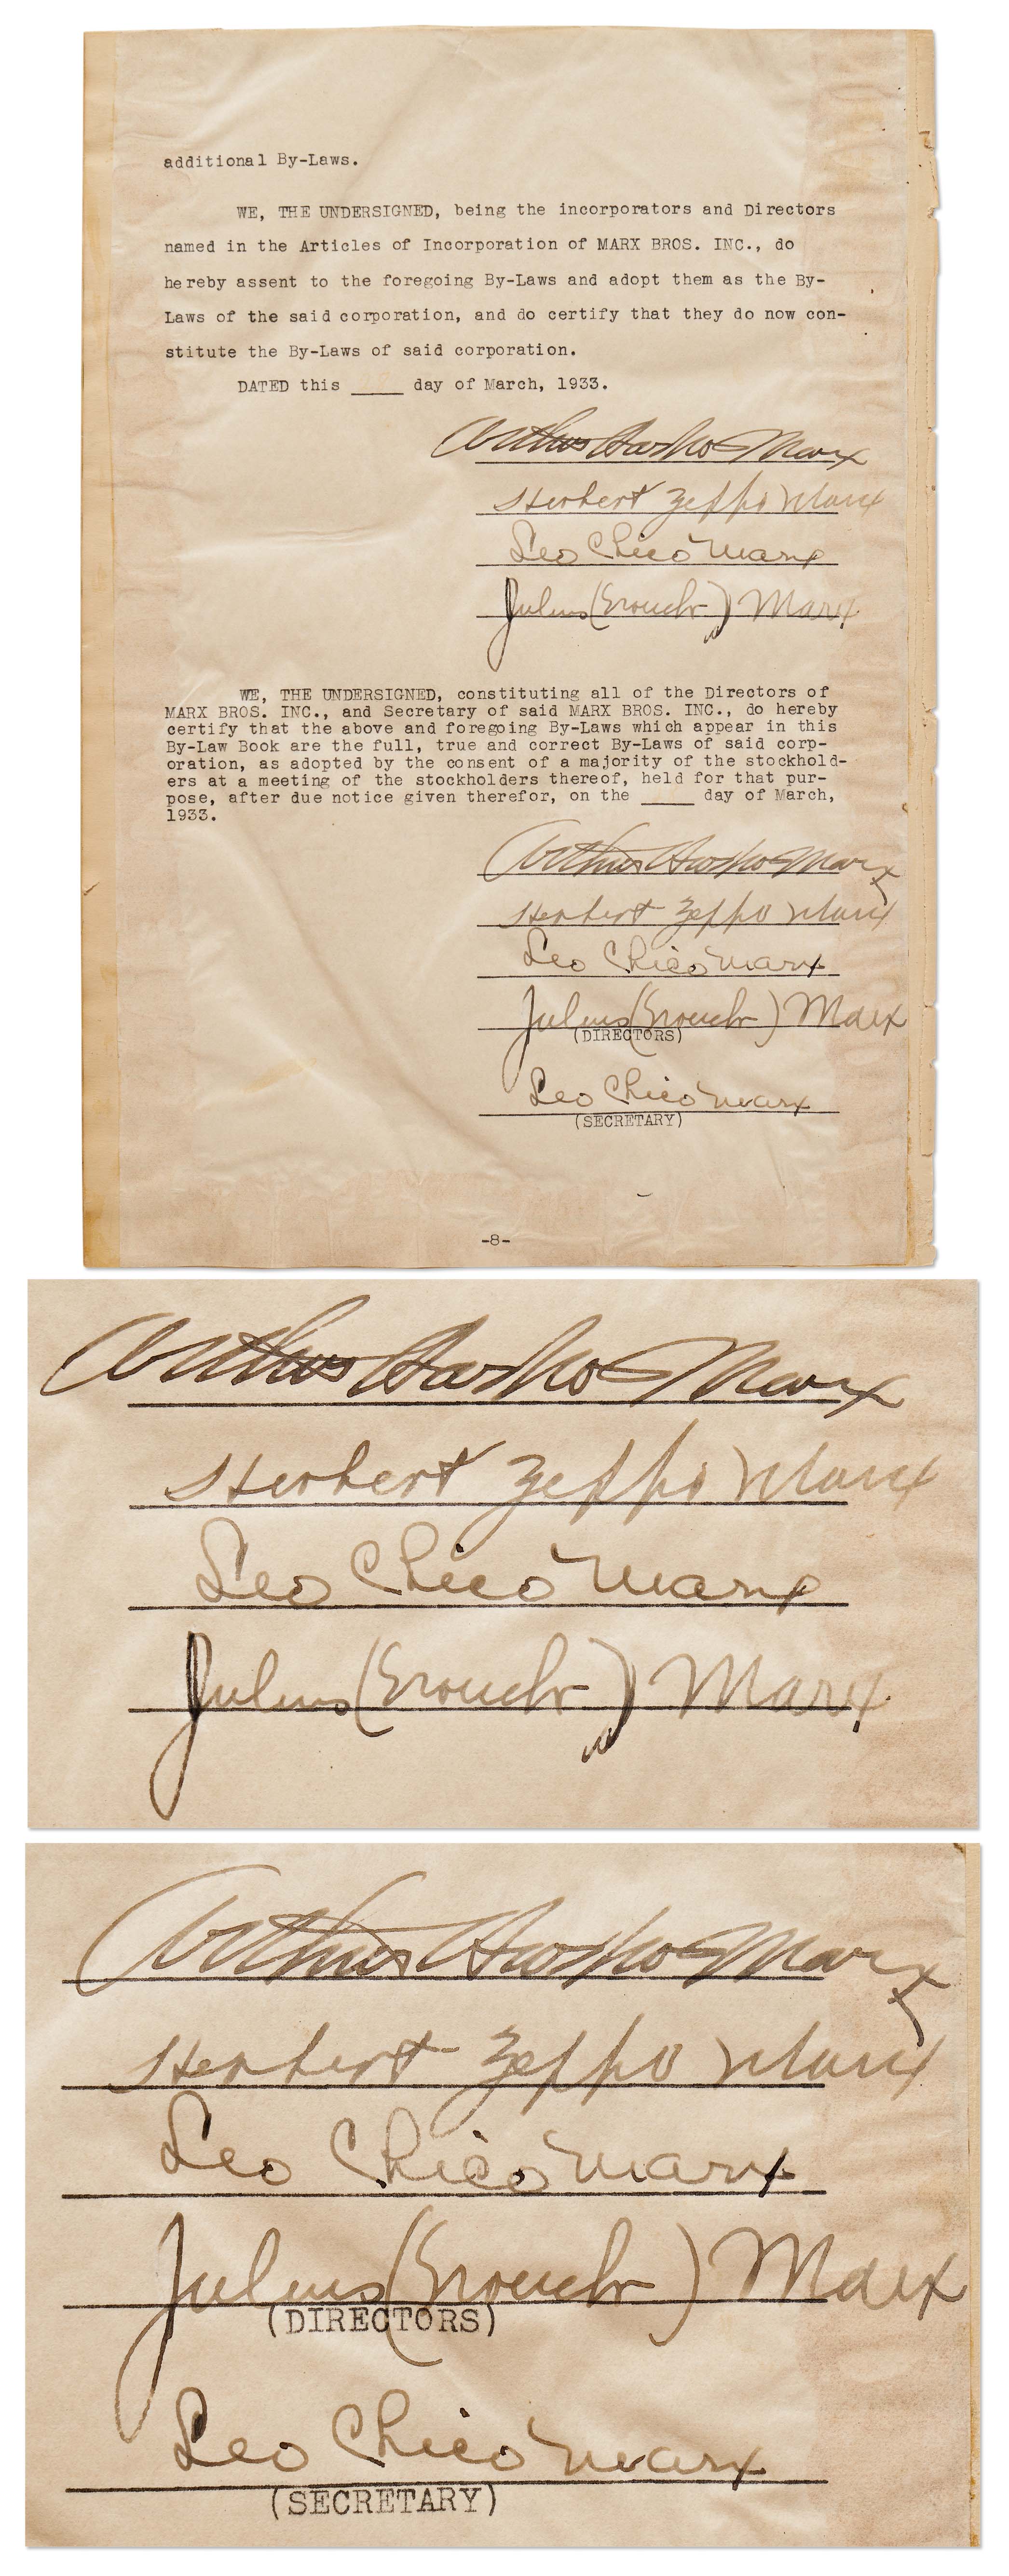 additional By-Laws.
WE, THE UNDERSIGNED, being the incorporators and Directors
named in the Articles of Incorporation of MARX BROS. INC., do
hereby assent to the foregoing By-Laws and adopt them as the By-
Laws of the said corporation, and do certify that they do now con-
stitute the By-Laws of said corporation.
DATED this ____ day of March, 1933.
Arthur Harpo Marx
Herbert Zeppo Marx
Leo Chico Marx
Julius (Groucho) Marx
WE, THE UNDERSIGNED, constituting all of the Directors of
MARX BROS. INC., and Secretary of said MARX BROS. INC., do hereby
certify that the above and foregoing By-Laws which appear in this
By-Law Book are the full, true and correct By-Laws of said corp-
oration, as adopted by the consent of a majority of the stockhold-
ers at a meeting of the stockholders thereof, held for that pur-
pose, after due notice given therefor, on the ____ day of March,
1933.
Arthur Harpo Marx
Herbert Zeppo Marx
Leo Chico Marx
Julius (Groucho) Marx
(DIRECTORS)
Leo Chico Marx
(SECRETARY)
-8-
Arthur Harpo Marx
Herbert Zeppo Marx
Leo Chico Marx
Julius (Groucho) Marx
Arthur Harpo Marx
Herbert Zeppo Marx
Leo Chico Marx
Julius (Groucho) Marx
(DIRECTORS)
Leo Chico Marx
(SECRETARY)